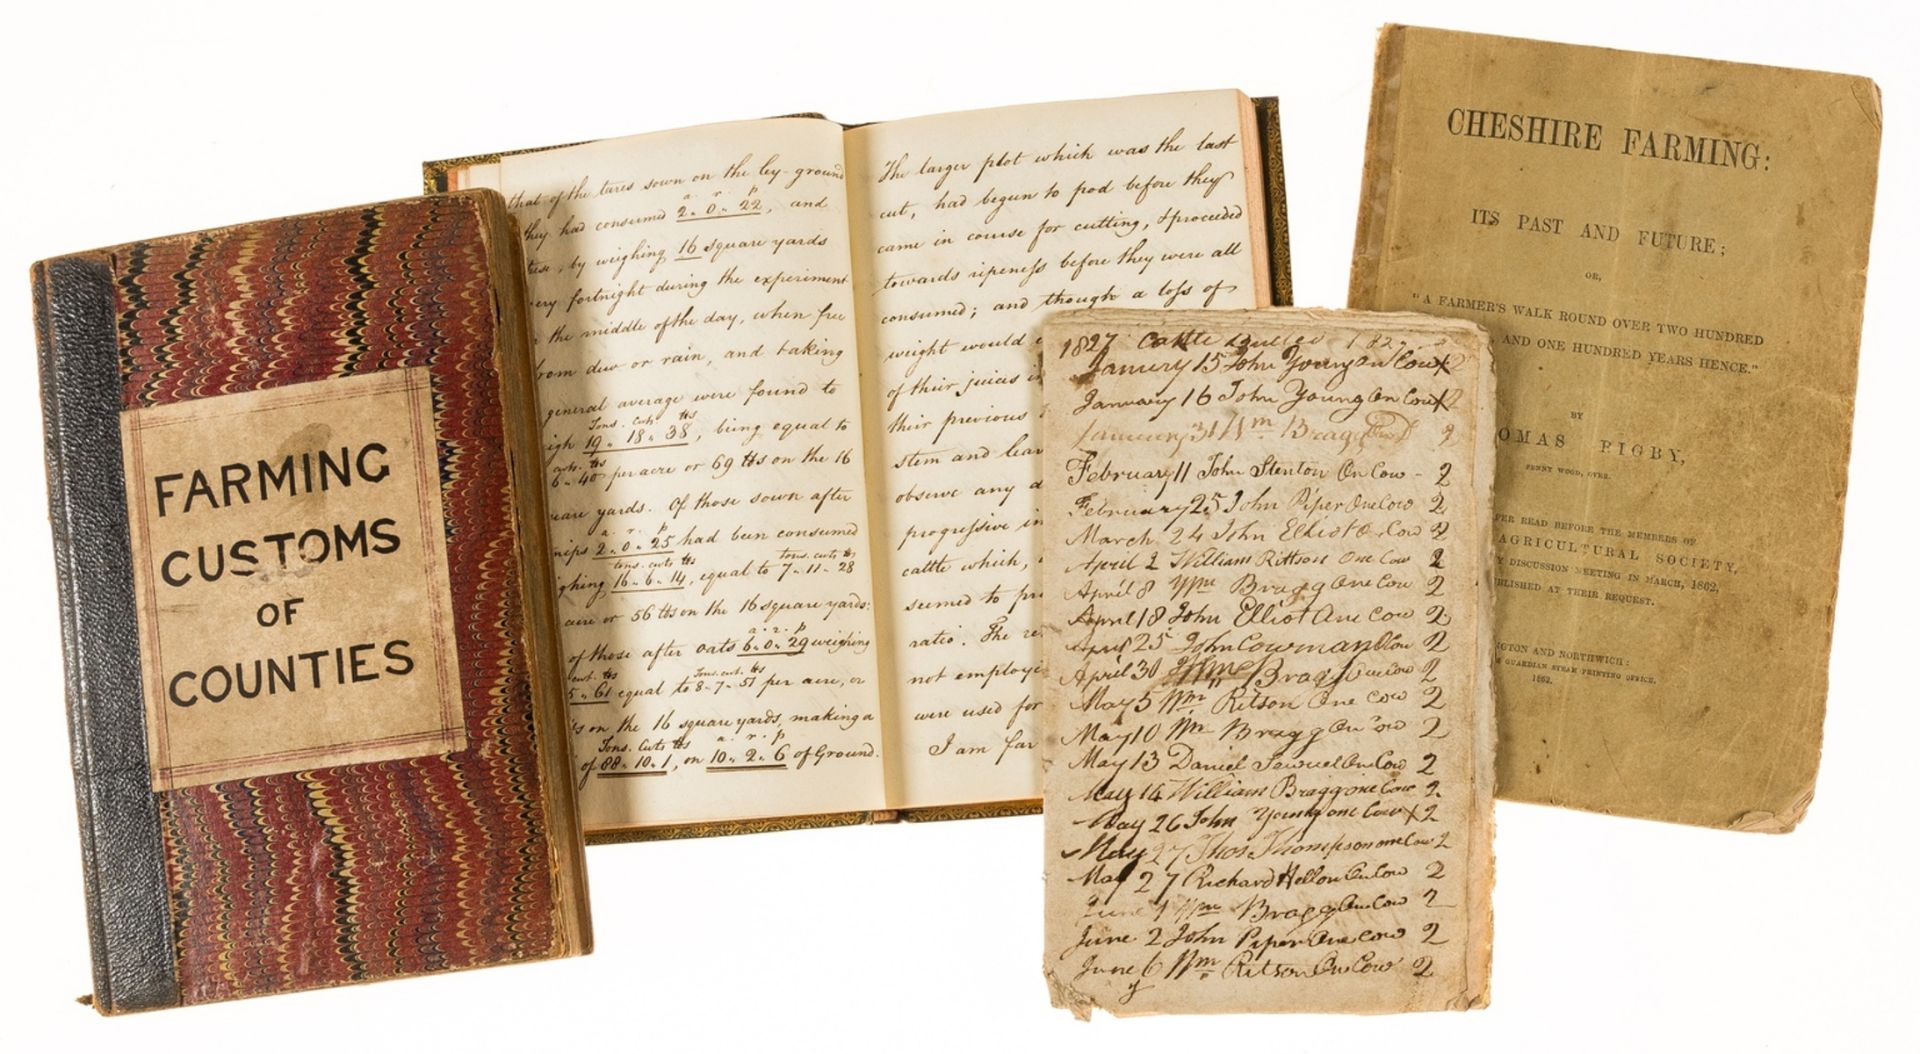 FARMING
CUSTOMS
OF
COUNTIES
that of the tares sown on the ley-ground
they had consumed 2. 0. 22, and
a. r. p
by weighing 16 square yards
fortnight during the experiment
the middle of the day, when free
from dew or rain, and taking
general average were found to
Tons. Cwts. lbs
19. 18. 38, being equal to
cwts. lbs
6. 40 per acre or 69 lbs on the 16
yards. Of those sown after
a. r. p
2. 0. 25 had been consumed
tons. cwts lbs tons. cwts lbs
16. 6. 14, equal to 7. 11. 28
acre or 56 lbs on the 16 square yards:
a. r. p
of those after oats 6. 0. 29 weighing
cwt. lbs Tons. cwt. lbs
5. 61 equal to 8. 7. 51 per acre, or
on the 16 square yards, making a
Tons. Cwts lbs a. r. p
of 88. 10. 1, on 10. 2. 6 of Ground.
The larger plot which was the last
cut, had begun to pod before they
came in course for cutting, & proceeded
towards ripeness before they were all
consumed; and though a loss of
weight would
of their juices
their previous
stem and
observe any
progressive in
cattle which,
seemed to
ratio. The
not
were used for
I am far
1827 Cattle 1827
January 15 John Young on Cow x 2
January 16 John Young On Cow x 2
January 31 Wm Bragg 2
February 11 John Stenton On Cow - 2
February 25 John Piper One Cow 2
March 24 John Elliot O. Cow 2
April 2 William Rittson One Cow 2
April 8 Wm Bragg One Cow 2
April 18 John Elliot One Cow 2
April 25 John Cowman 2
April 30 Wm Bragg Cow 2
May 5 Wm Ritson One Cow 2
May 10 Wm Bragg On Cow 2
May 13 Daniel On Cow 2
May 14 William Bragg one Cow 2
May 26 John Young one Cow x 2
May 27 Thos Thompson one Cow 2
May 27 Richard On Cow 2
June 1 Wm Bragg One Cow 2
June 2 John Piper One Cow 2
June 6 Wm Ritson On Cow 2
y
CHESHIRE FARMING:
ITS PAST AND FUTURE;
OR,
"A FARMER'S WALK ROUND OVER TWO HUNDRED
AND ONE HUNDRED YEARS HENCE."
BY
RIGBY,
READ BEFORE THE MEMBERS OF
AGRICULTURAL SOCIETY,
DISCUSSION MEETING IN MARCH, 1862,
AT THEIR REQUEST.
AND NORTHWICH:
GUARDIAN STEAM PRINTING OFFICE.
1862.